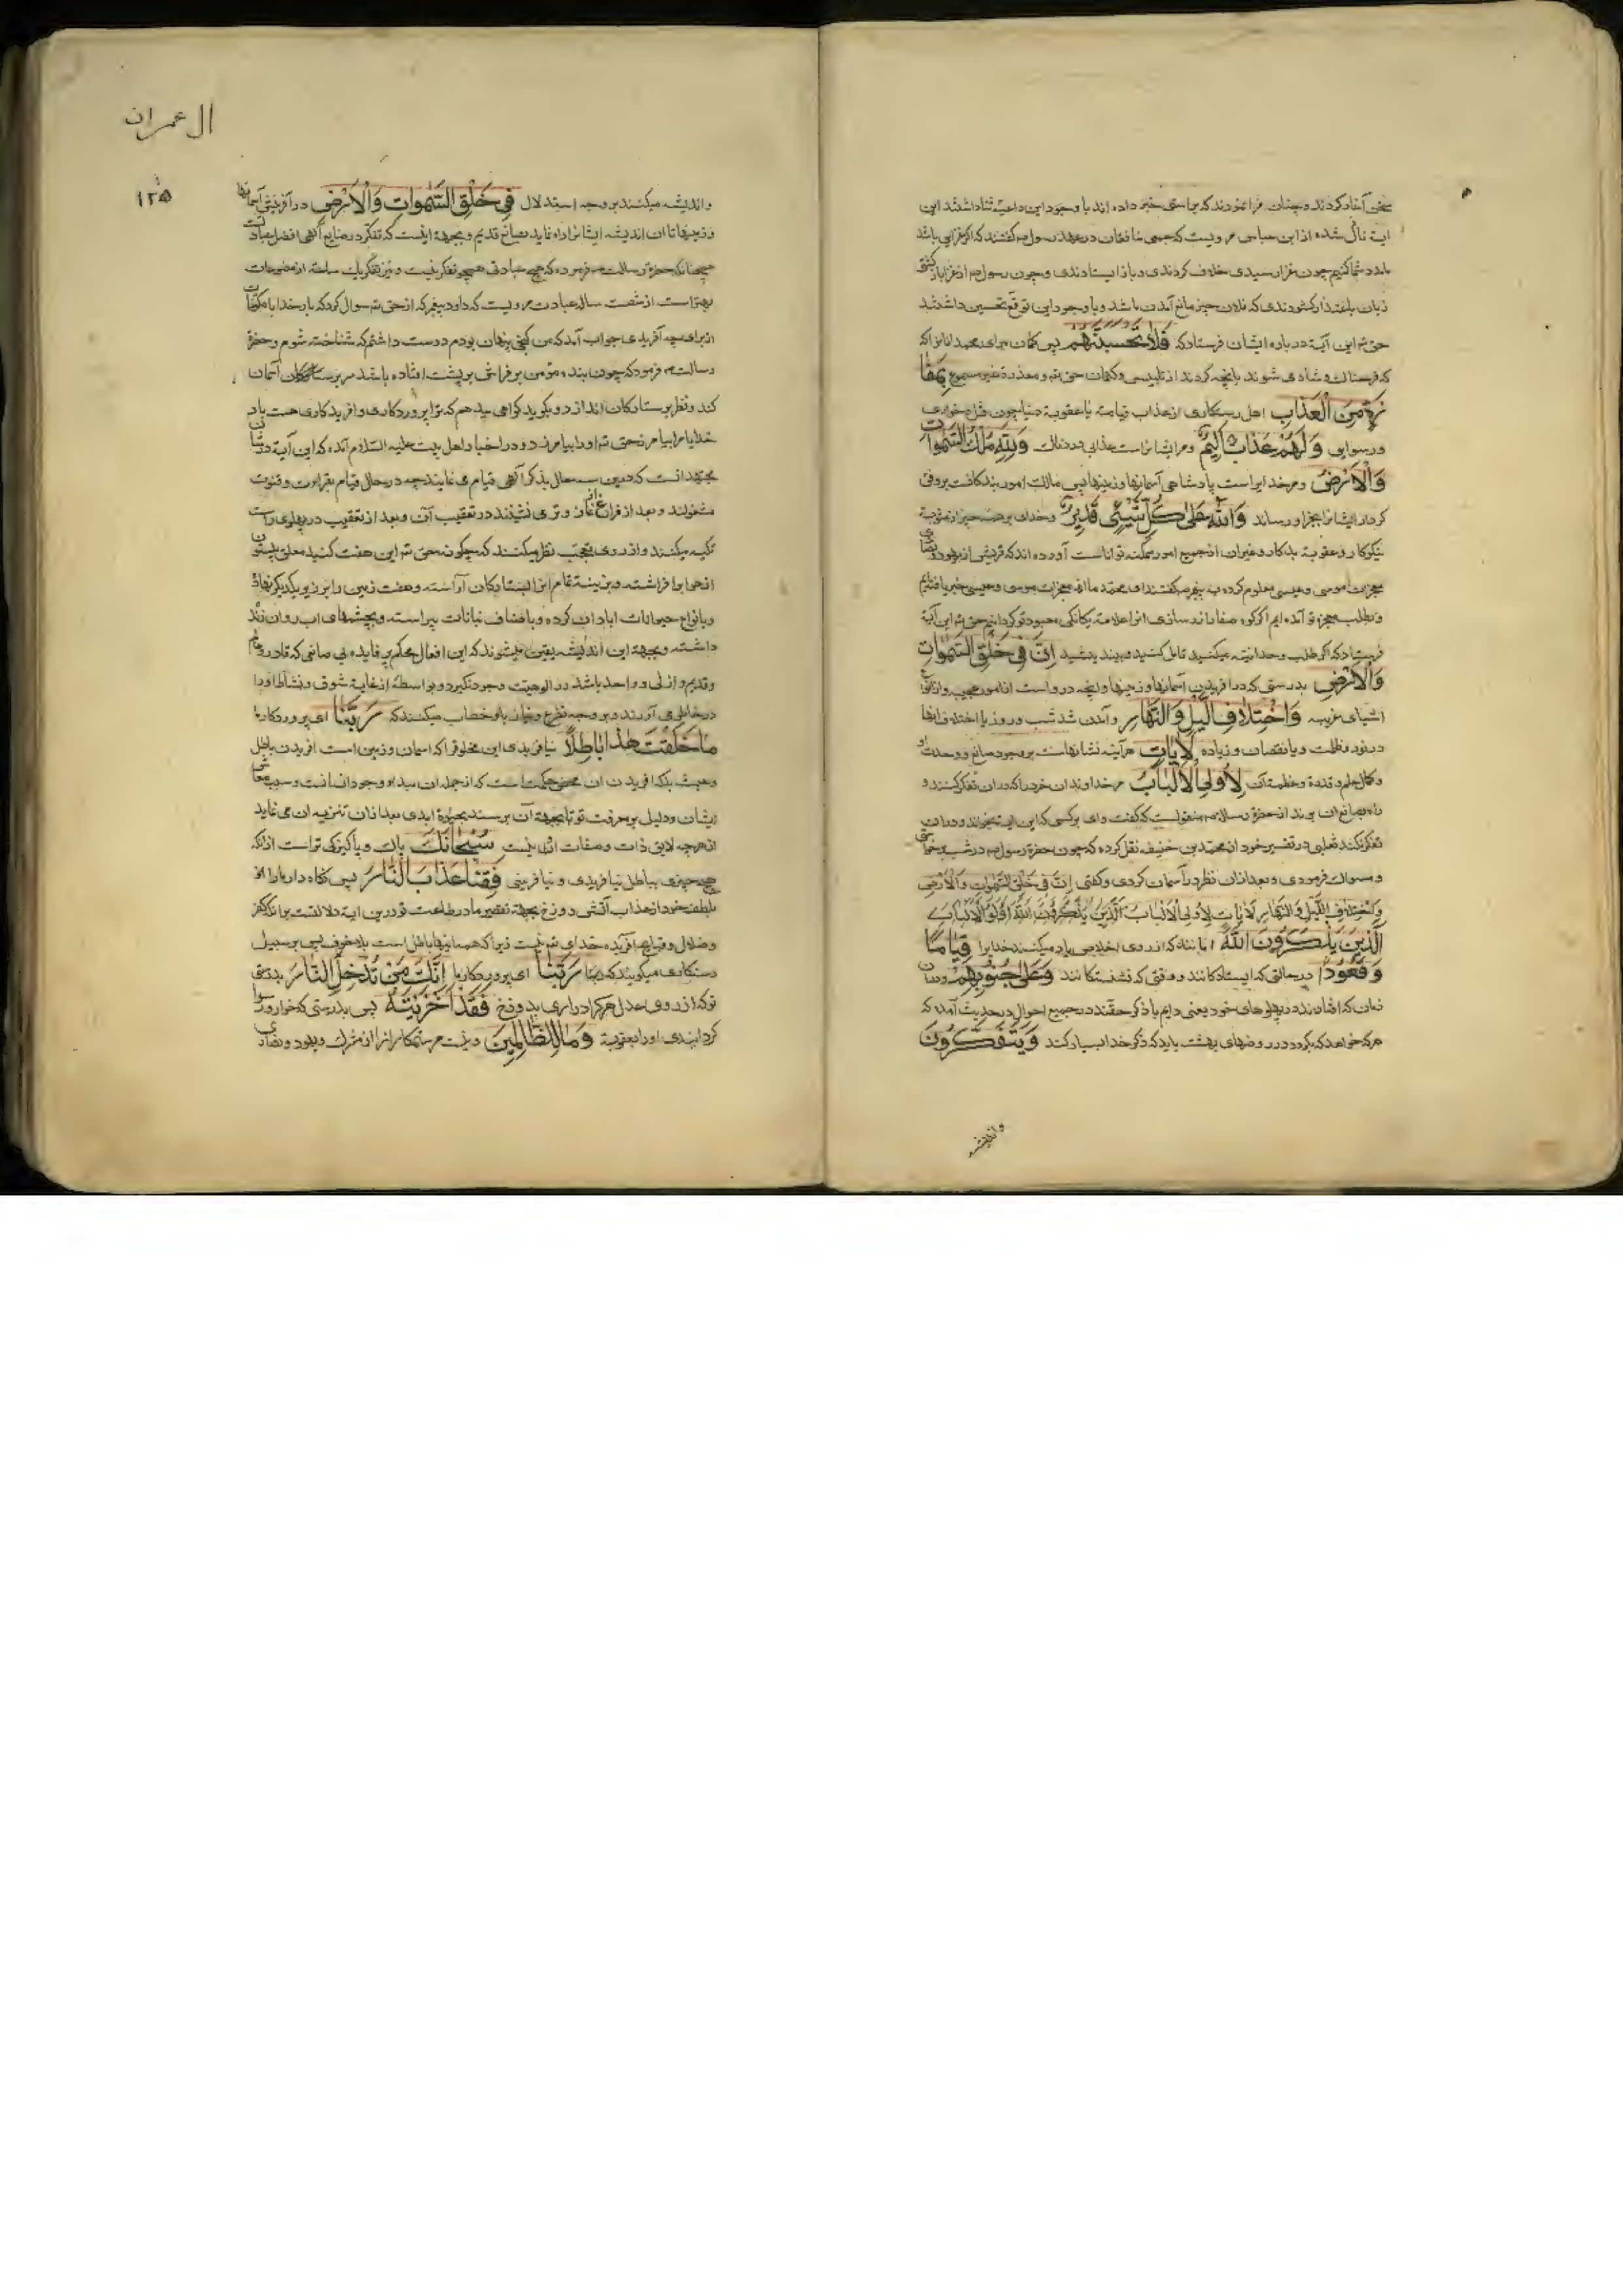 سخن آغاز کردند و چنان فرا نمودند که براستی خبر داده اند با وجود این داعیه ثنا داشتند این
ایة نازل شده از ابن عباس مرویست که جمعی منافقان در عهد رسول ص گفتند که اگر غزایی باشد
مدد شما کنیم چون غزا رسیدی خلاف کردندی و باز ایستادندی و چون رسول ص از غزا باز گشتی
زبان باعتذار گشودندی که فلان چیز مانع آمدن ما شد و با وجود این توقع تحسین داشتند
حق تع این آیة درباره ایشان فرستاد که فَلَا تَحْسَبَنَّهُم پس گمان مبرای محمد انانرا که
که فرحناک و شادی شوند بآنچه کردند از تلبیس و کتمان حق بمفا
زَةٍ مِنَ الْعَذَابِ اهل رستکاری از عذاب قیامة یا عقوبة دنیا چون قتل و خواری
و رسوایی وَلَهُمْ عَذَابٌ أَلِيمٌ و مر ایشانراست عذابی دردناک وَلِلَّهِ مُلْكُ السَّمٰوَاتِ
وَالْأَرْضِ و مر خدایراست پادشاهی آسمانها و زمینها پس مالک امور بندگانست بر وفق
کردار ایشانرا جزا رساند وَاللَّهُ عَلَىٰ كُلِّ شَيْءٍ قَدِيرٌ و خدای بر همه چیز از مثوبة
نیکوکار و عقوبة بدکار و غیر ان از جمیع امور ممکنه تواناست آورده اند که قریش از یهود و نصاری
معجزات موسی و عیسی معلوم کرده به پیغمبر گفتند ای محمد ما از معجزات موسی و عیسی خبر یافتیم
و بطلب معجزه تو آمده ایم اگر کوه صفا را زر سازی انرا علامة یکانکی معبود تو گردانیم حق تع این آیة
فرستاد که اگر طلب وحدانیة میکنید تامل کنید و ببینید إِنَّ فِي خَلْقِ السَّمٰوَاتِ
وَالْأَرْضِ بدرستی که در افریدن آسمانها و زمینها و انچه دروست از امور عجیبه و انواع
اشیای غریبه وَاخْتِلَافِ اللَّيْلِ وَالنَّهَارِ و آمدن شد شب و روز یا اختلاف انها
در نور و ظلمت و یا نقصان و زیاده لَآيَاتٍ هر آینه نشانهاست بر وجود صانع و وحدت او
و کمال علم و قدرة و عظمت آن لِأُولِي الْأَلْبَابِ مر خداوندان خرد را که در ان تفکر کنند و
راه بصانع ان برند از حضرة رسالة ص منقولست که گفت وای بر کسی که این ایة بخواند و دران
تفکر نکند ثعلبی در تفسیر خود از محمد بن حنیفه نقل کرده که چون حضرة رسول ص در شب برخاستی
و مسواک فرمودی و بعد از ان نظر در آسمان کردی و گفتی إِنَّ فِي خَلْقِ السَّمٰوَاتِ وَالْأَرْضِ
وَاخْتِلَافِ اللَّيْلِ وَالنَّهَارِ لَآيَاتٍ لِأُولِي الْأَلْبَابِ الَّذِينَ يَذْكُرُونَ اللَّهَ
الَّذِينَ يَذْكُرُونَ اللَّهَ انانند که از روی اخلاص یاد میکنند خدایرا قِيَامًا
وَقُعُودًا در حالتی که ایستادگانند و وقتی که نشستگانند وَعَلَىٰ جُنُوبِهِمْ و در ان
زمان که افتاده اند در پهلوهای خود یعنی دایم با ذکر حقند در جمیع احوال در حدیث آمده که
هر که خواهد که بگردد در روضهای بهشت باید که ذکر خدا بسیار کند وَيَتَفَكَّرُونَ
واندیشه
ال عمران
۱۲۵
و اندیشه میکنند بر وجه استدلال فِي خَلْقِ السَّمٰوَاتِ وَالْأَرْضِ در آفرینش آسمانها
و زمینها تا ان اندیشه ایشانرا راه نماید بصانع قدیم و بجهة اینست که تفکر در صنایع آلهی افضل عباداتست
همچنانکه حضرة رسالت ص فرموده که هیچ عبادتی همچو تفکر نیست و نیز تفکر یک ساعة از مصنوعات
بهتر است از شصت سال عبادت مرویست که داود پیغمبر که از حق تع سوال کرد که بار خدایا مکونات
از برای چه آفریدی جواب آمد که من کنجی پنهان بودم دوست داشتم که شناخته شوم و حضرة
رسالت ص فرمود که چون بنده مؤمن بر فراش بر پشت افتاده باشد سر بر آسمان
کند و نظر بر ستارگان اندازد و بگوید گواهی میدهم که ترا پروردگاری و افریدگاری هست بار
خدایا مرا بیامرز حق تع او را بیامرزد و در اخبار اهل بیت علیه السلام آمده که این آیة در شان
متهجدانست که درین سه حال بذکر آلهی قیام می نمایند چه در حال قیام بقرائت و قنوت
مشغولند و بعد از فراغ نماز می نشینند در تعقیب آن و بعد از تعقیب در پهلوی راست
تکیه میکنند و از روی تعجب نظر میکنند که چگونه حق تع این هفت گنبد معلق بیستون
از هوا برافراشته و بزینة تمام انرا بستارگان آراسته و هفت زمین را بر زیر یکدیگر نهاده
و بانواع حیوانات ابادان کرده و باصناف نباتات پیراسته و بچشمهای اب روان زنده
داشته و بجهة این اندیشه یقین میشوند که این افعال محکم پر فایده بی صانعی که قادر و عالم
و قدیم و ازلی و واحد باشد در الوهیت وجود نگیرد و بواسطه از غایة شوق و نشاط اورا
در خاطر می آورند و بر وجه تضرع و نیاز باو خطاب میکنند که رَبَّنَا ای پروردگار ما
مَا خَلَقْتَ هٰذَا بَاطِلًا نیافریدی این مخلوق را که اسمان و زمین است افریدن باطل
و عبث بلکه افریدن ان محض حکمت است که از جمله ان مبداء وجود انسانست و سبب معاش
ایشان و دلیل بر معرفت تو تا بجهة آن برسند بحیوة ابدی بعد از ان تنزیه ان می نماید
از هرچه لایق ذات و صفات ان نیست سُبْحَانَكَ پاک و پاکیزکی تراست از انکه
هیچ چیزی بباطل نیافریدی و نیافرینی فَقِنَا عَذَابَ النَّارِ پس نگاه دار ما را از
بلطف خود از عذاب آتش دوزخ بجهة تقصیر ما در طاعت تو درین ایة دلالتست برانکه کفر
و ضلال و قبایح آفریده خدای تع نیست زیرا که همه اینها باطل است بلا خوف پس بر سبیل
رستکاری میگویند که ربنا رَبَّنَا ای پروردگار ما إِنَّكَ مَنْ تُدْخِلِ النَّارَ بدرستی
تو که از روی عدل هر کرا دراری بدوزخ فَقَدْ أَخْزَيْتَهُ پس بدرستی که خوار و رسوا
گردانیدی اورا بعقوبة وَمَا لِلظَّالِمِينَ و نیست مر ستمکارانرا از مشرک و یهود و نصاری